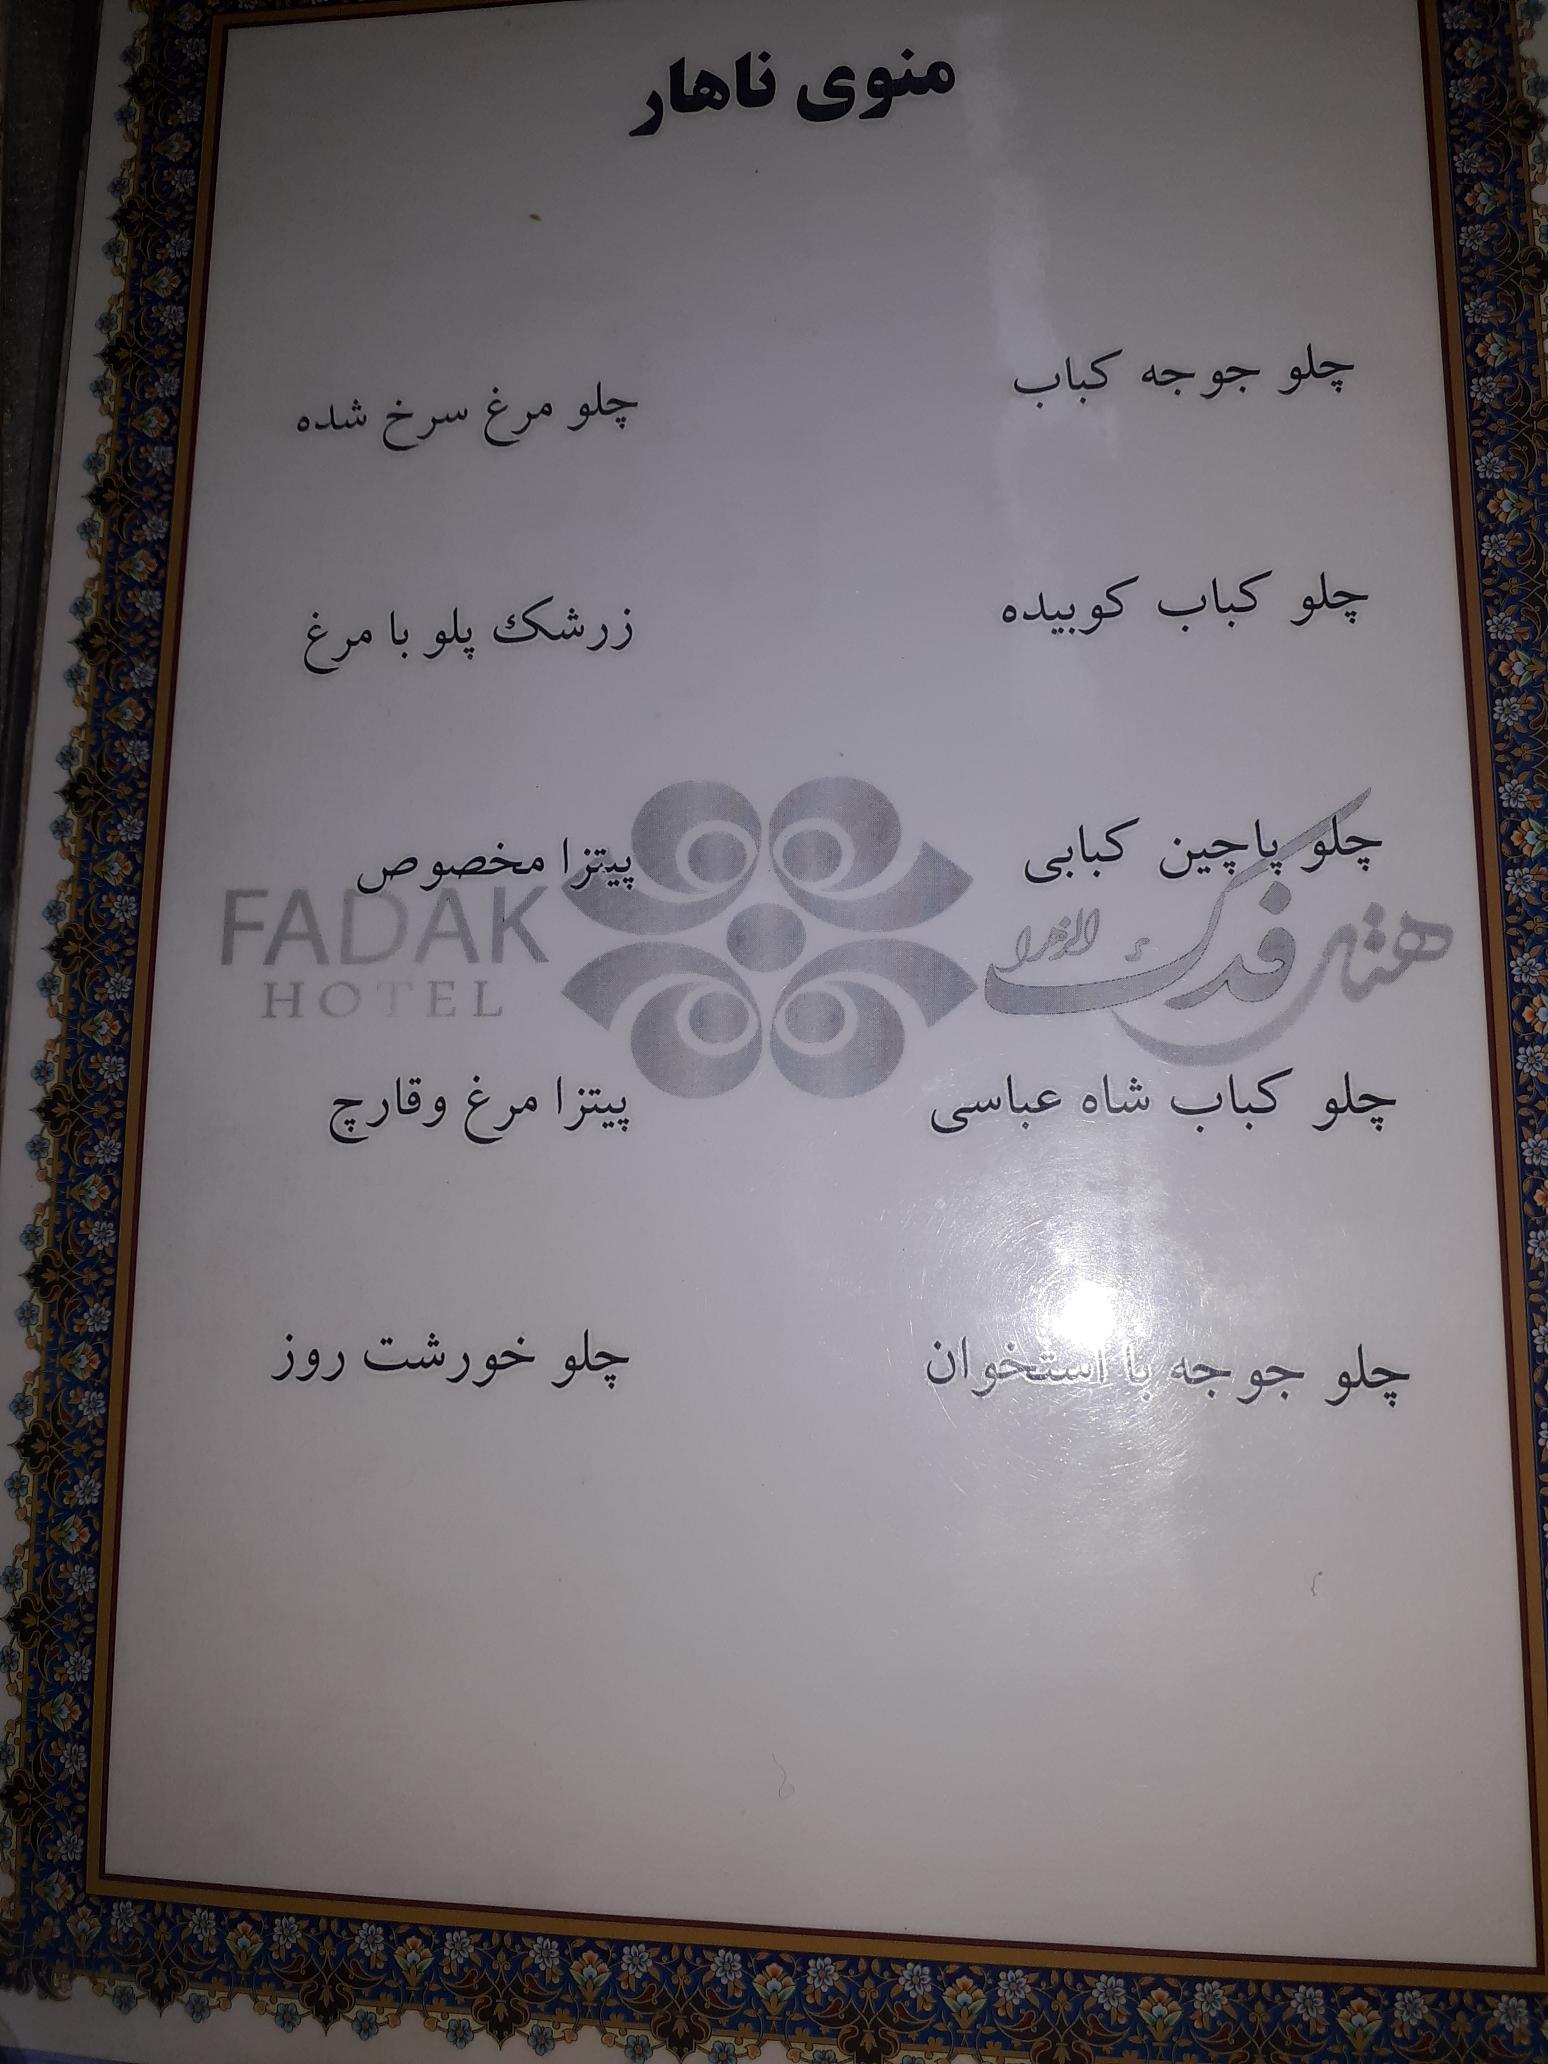 منوی ناهار
چلو جوجه کباب
چلو مرغ سرخ شده
چلو کباب کوبیده
زرشک پلو با مرغ
چلو پاچین کبابی
پیتزا مخصوص
هتل فدک الزهرا
FADAK
HOTEL
چلو کباب شاه عباسی
پیتزا مرغ وقارچ
چلو جوجه با استخوان
چلو خورشت روز